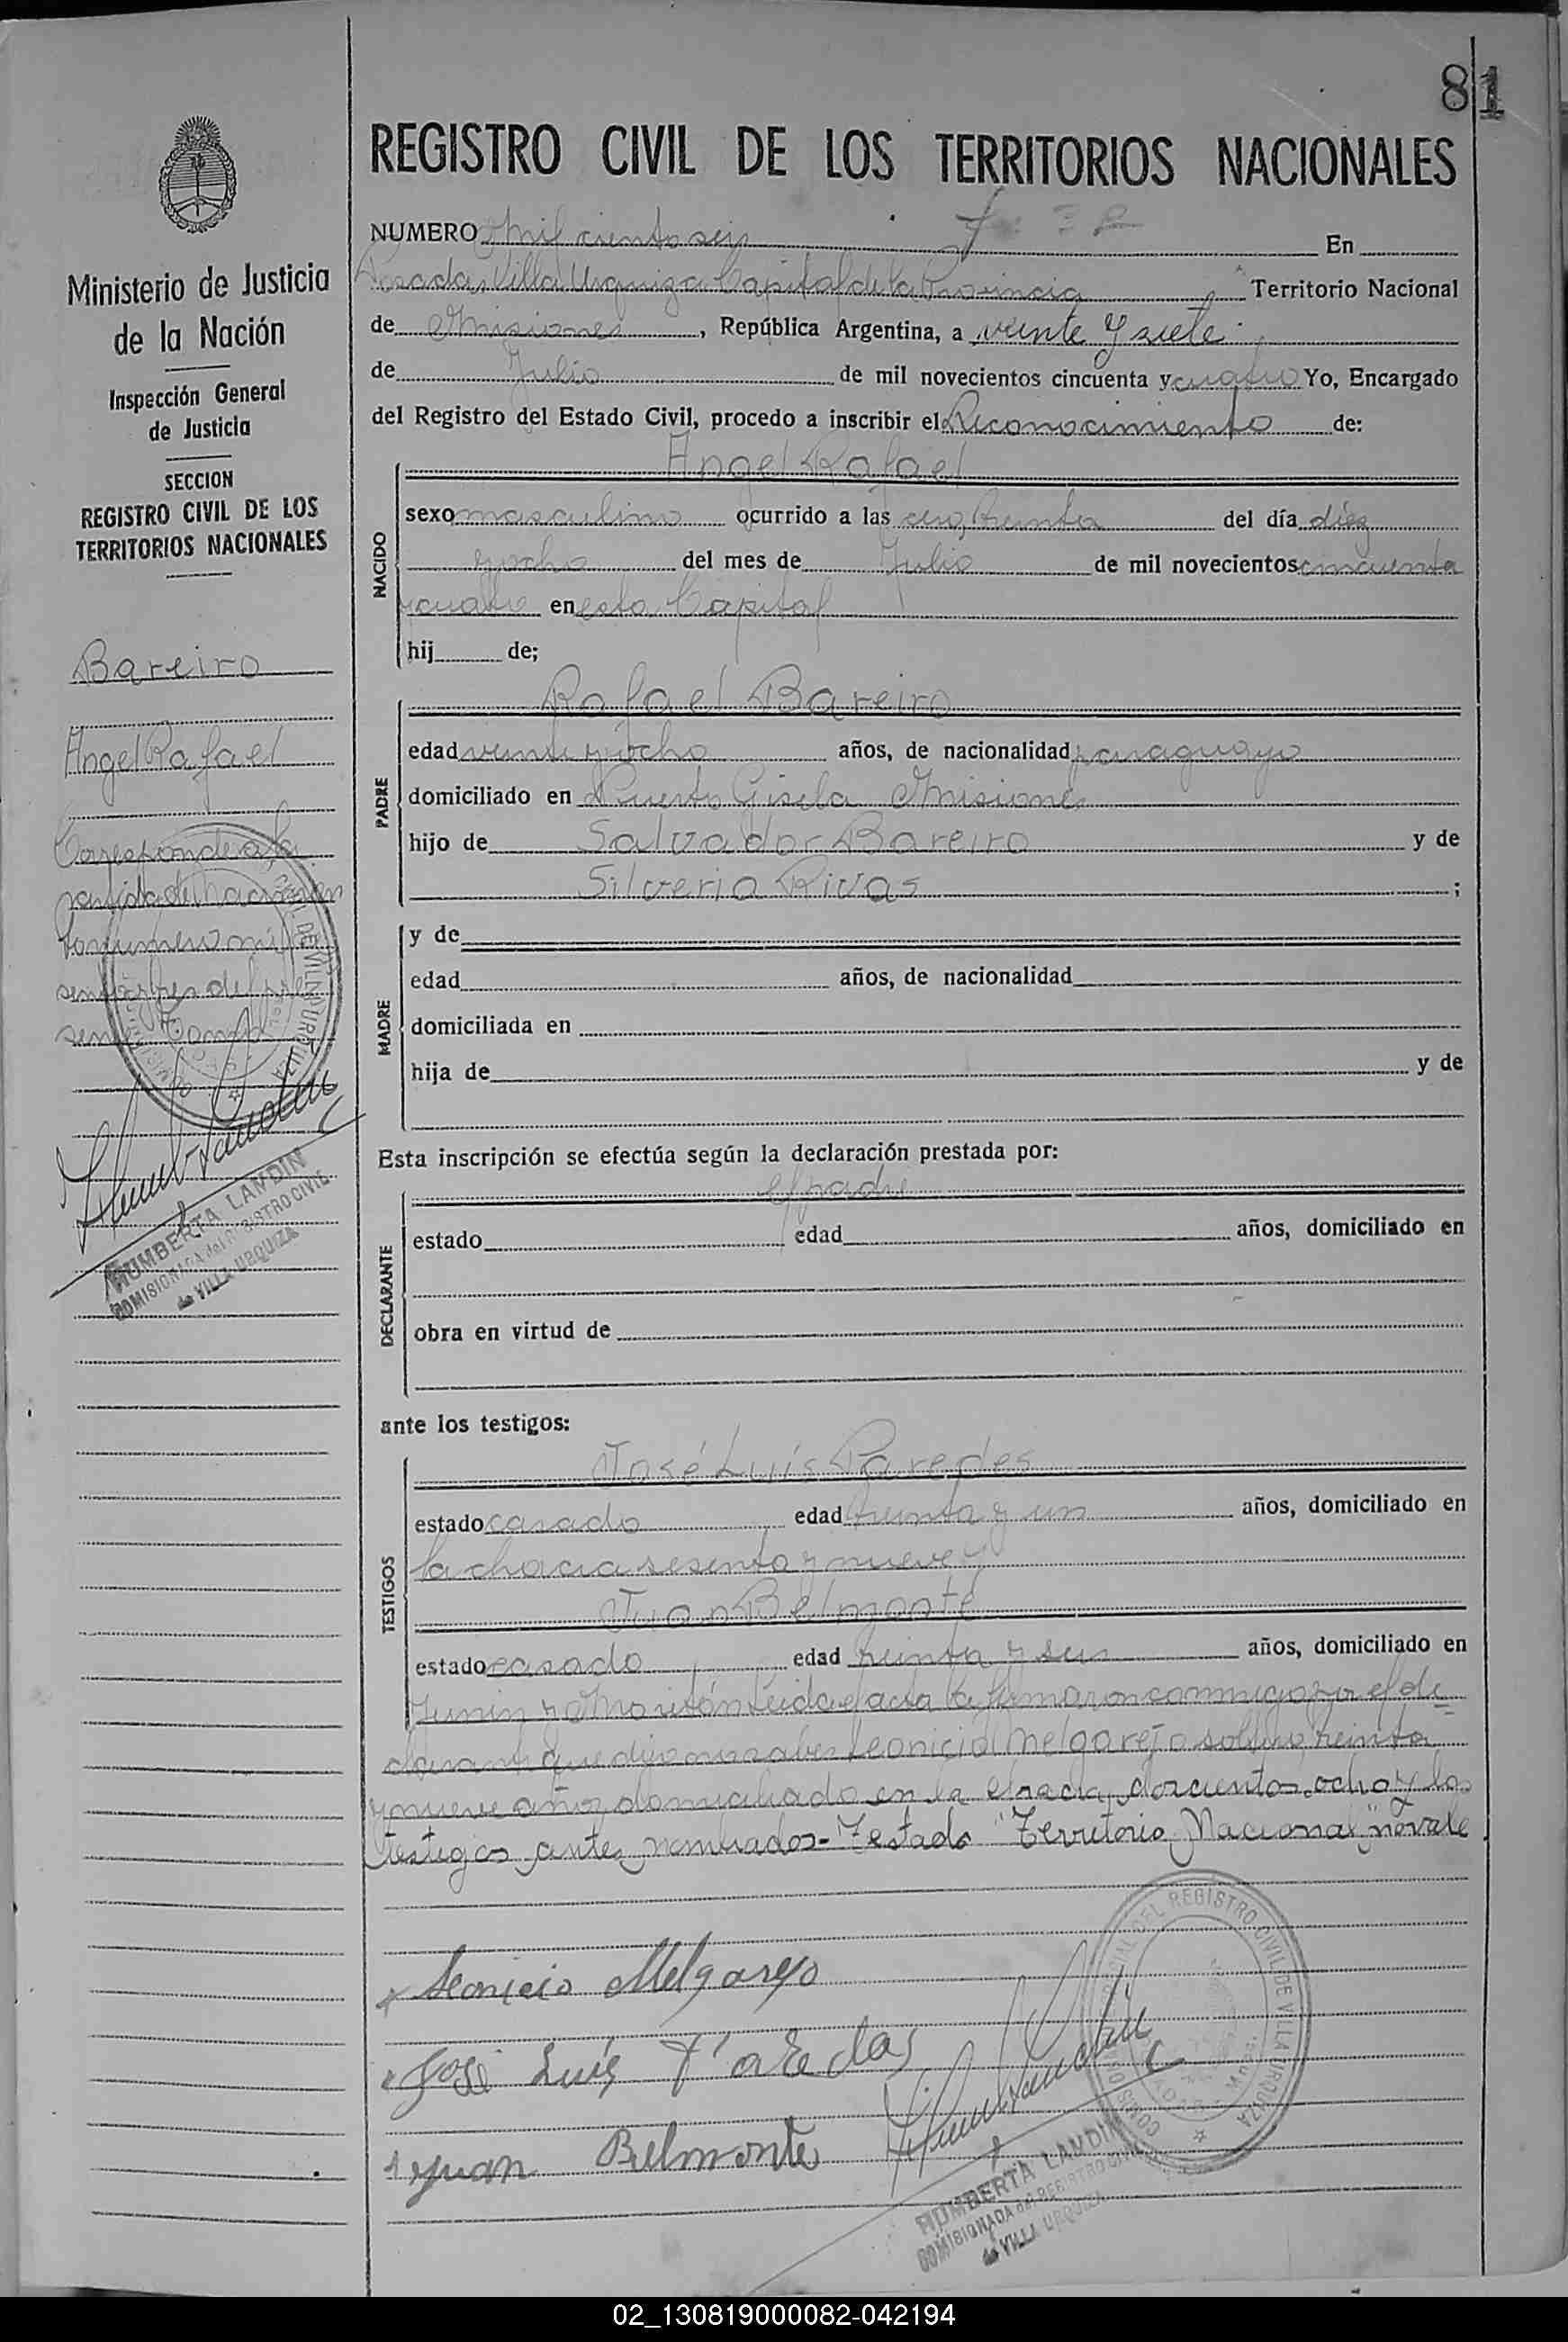 81
REGISTRO CIVIL DE LOS TERRITORIOS NACIONALES
NUMERO mil ciento seis En
Posadas Villa Urquiza Capital de la Provincia Territorio Nacional
de Misiones, República Argentina, a veinte y siete
de Julio de mil novecientos cincuenta y cuatro Yo, Encargado
del Registro del Estado Civil, procedo a inscribir el Reconocimiento de:
NACIDO
Angel Rafael
sexo masculino ocurrido a las cero, treinta del día diez
y ocho del mes de Julio de mil novecientos cincuenta
y cuatro en esta Capital
hij de;
PADRE
Rafael Bareiro
edad veinte y ocho años, de nacionalidad paraguayo
domiciliado en Puerto Gisela Misiones
hijo de Salvador Bareiro y de
Silveria Rivas ;
MADRE
y de
edad años, de nacionalidad
domiciliada en
hija de y de
Esta inscripción se efectúa según la declaración prestada por:
DECLARANTE
el padre
estado edad años, domiciliado en
obra en virtud de
ante los testigos:
TESTIGOS
José Luís Paredes
estado casado edad treinta y un años, domiciliado en
la chacra sesenta y nueve y
Juan Belmonte
estado casado edad treinta y seis años, domiciliado en
Junin y Leida el acta la firmaron conmigo por el de
clarante que dijo no saber Leonicio Melgarejo soltero treinta
y nueve años domiciliado en la chacra doscientos ocho y los
testigos antes nombrados- Testado "Territorio Nacional" no vale
Leonicio Melgarejo
José Luís Paredas
Juan Belmonte
COMISIONADA DEL REGISTRO CIVIL DE VILLA URQUIZA
HUMBERTA LANDIN
COMISIONADA del REGISTRO CIVIL
de VILLA URQUIZA
Ministerio de Justicia
de la Nación
Inspección General
de Justicia
SECCION
REGISTRO CIVIL DE LOS
TERRITORIOS NACIONALES
Bareiro
Angel Rafael
Corresponde a la
partida de nacimien
to numero mil
sen y tres del pre
sente Tomo
HUMBERTA LANDIN
COMISIONADA del REGISTRO CIVIL
de VILLA URQUIZA
02_130819000082-042194